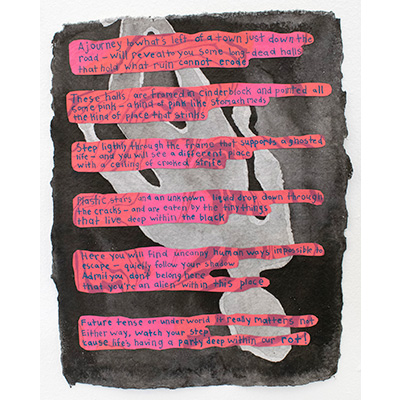 A journey to what's left of a town just down the
road – will reveal to you some long-dead halls
that hold what ruin cannot erode
These halls are framed in cinderblock and painted all
some pink – a kind of pink like stomach meds
the kind of place that stinks
Step lightly through the frame that supports a ghosted
life – and you will see a different place
with a ceiling of crooked strife
Plastic stars and an unknown liquid drop down through
the cracks – and are eaten by the tiny things
that live deep within the black
Here you will find uncanny human ways impossible to
escape – quietly follow your shadow
Admit you don't belong here
that you're an alien within this place
Future tense or under world it really matters not
Either way, watch your step
'cause life's having a party deep within our rot!